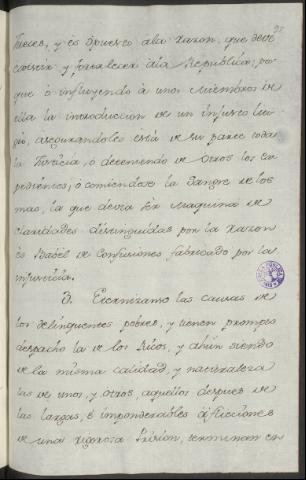 Jueces, y és opuesto ala razon, que deve
existir y fortalecer ála Republica, por
que ó influyendo à unos miembros de
ella la introduccion de un injusto liti
gio, asegurandoles está de su parte toda
la Justicia, ó deteniendo de otros los ex
pedientes, ó comiendose la Sangre de los
mas, la que devia ser maquina de
claridades distinguidas por la razon
és Babél de confusiones fabricado por la
injusticia.
3. Eternizanse las causas de
los delinquentes pobres, y tienen prompto
despacho la de los Ricos, y ahun siendo
de la misma calidad, y naturaleza
las de unos, y otros, aquellos despues de
las largas, é imponderables aflicciones
de una rigorosa Prision, terminan en